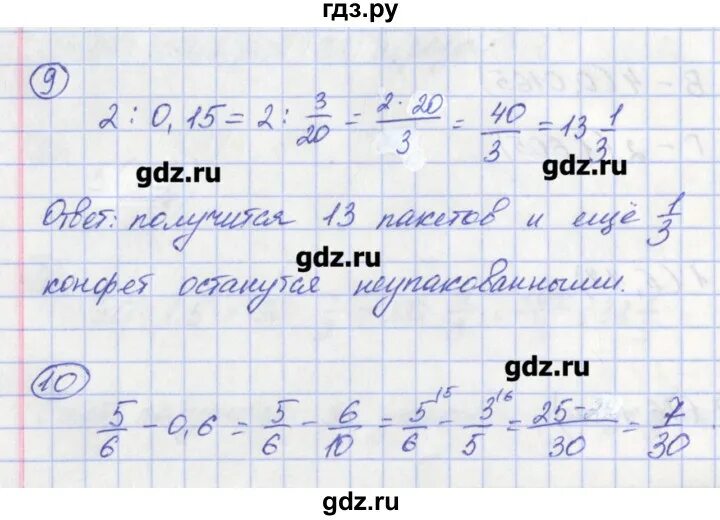 гдз.ру
9
2 : 0,15 = 2 : 3/20 = 2·20/3 = 40/3 = 13 1/3
gdz.ru
gdz.ru
Ответ: получится 13 пакетов и ещё 1/3
gdz.ru
конфет останутся неупакованными.
10
gdz.ru
5/6 - 0,6 = 5/6 - 6/10 = 5/6 - 3/5 = 25 - /30 = 7/30
gdz.ru